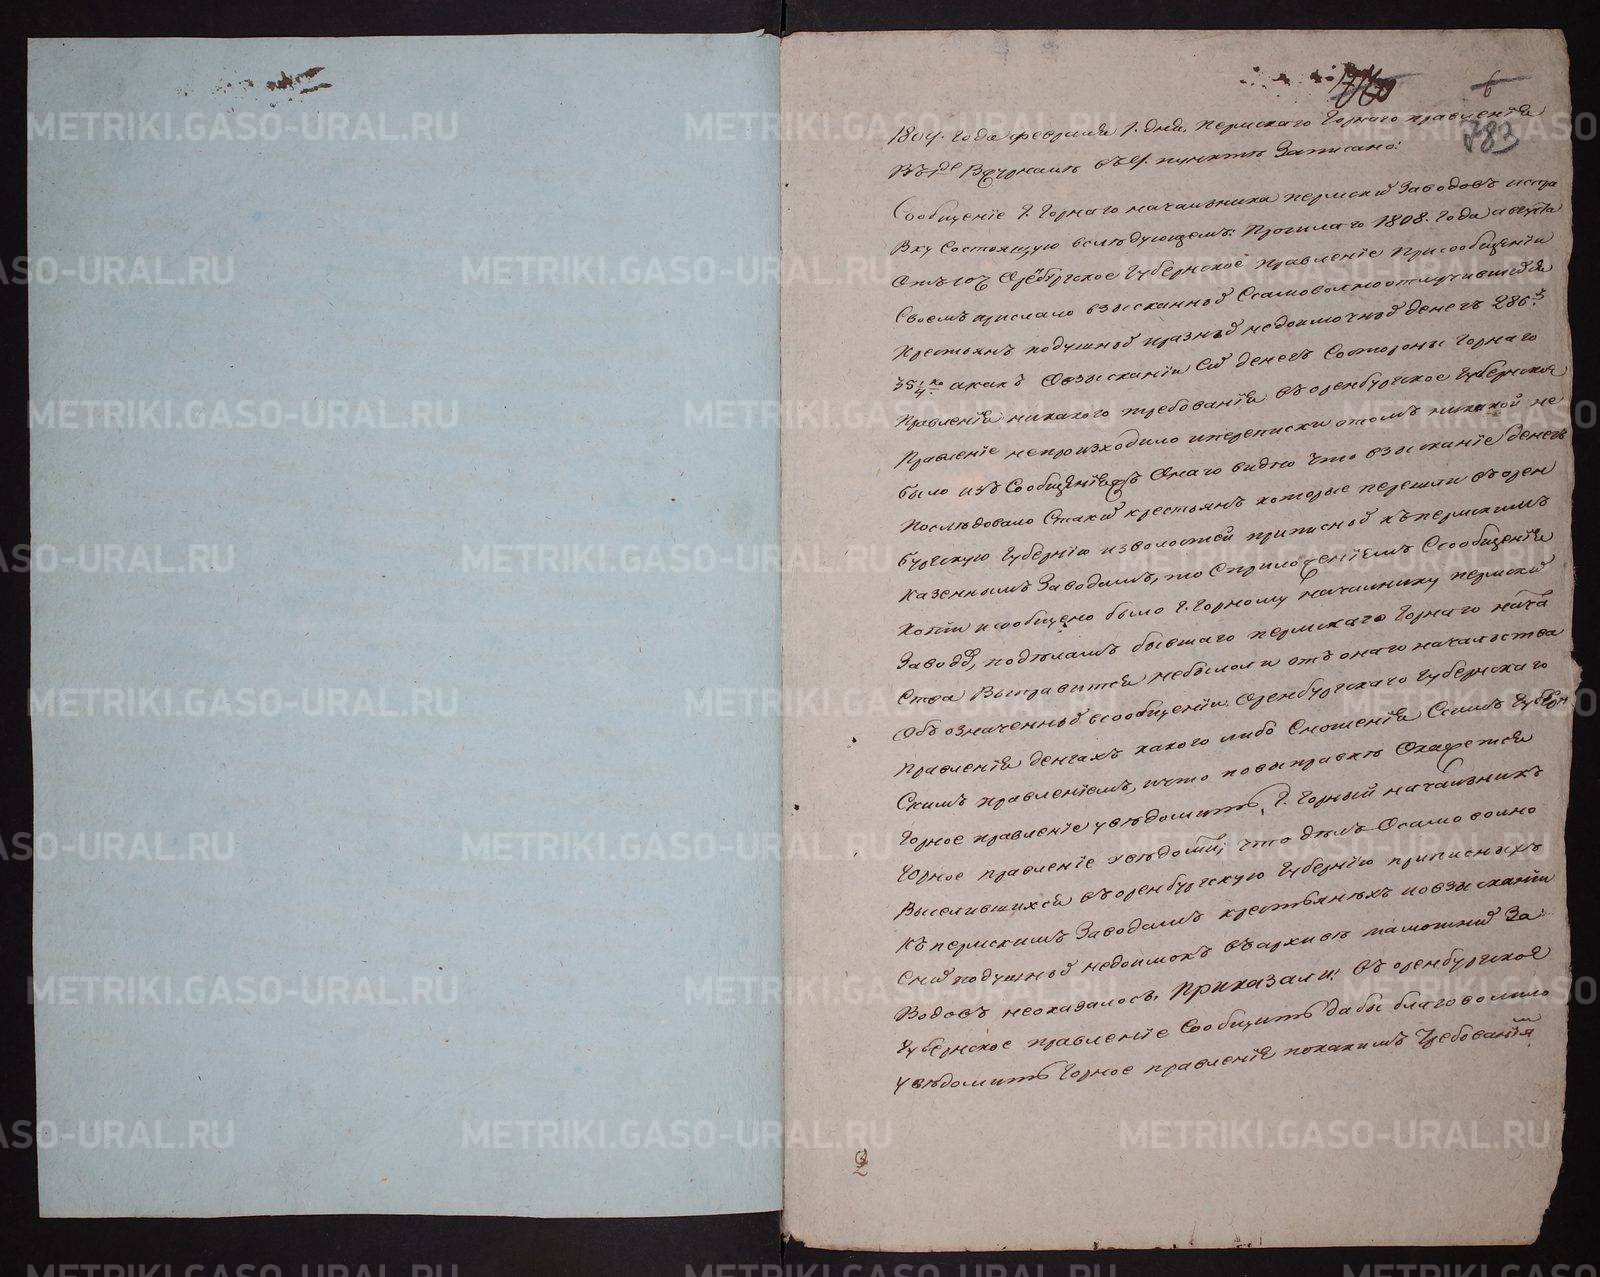 6
783
1809. Года февраля 1. дня. Пермскаго Горнаго правления
въ журнале въ пункте Записано:
Сообщение Г. Горнаго начальника пермских Заводовъ
Вку Состоящую вследующемъ: Прошлаго 1808. Года августа
Губернское правление Присообщении
Своемъ прислало взысканных Ссамовольноотлучившихся
Крестьянъ подушных разных недоимочных денегъ 286 р.
35 1/4 ко акакъ Овзыскании Сих денегъ Состороны Горнаго
Правления никакого требования въ оренбургское Губернское
Правление непроизходило ипереписки отомъ никакой не
было изъ Сообщения Онаго видно что взыскание денегъ
Последовало Стаких крестьянъ которые перешли въ орен
бургскую Губернию изволостей приписных къ пермскимъ
казеннымъ Заводамъ, то Сприложениемъ Ссообщения
Копии исообщено было Г. Горному начальнику пермских
Заводов, поделамъ бывшаго пермскаго Горнаго нача
ства Выправится небылоли отъ онаго началства
Объ означенных всообщении Оренбургскаго Губернскаго
правления денгахъ какого либо Сношения Ссимъ Губерн
Скимъ правлениемъ, ичто повыправке Окажется
Горное правление уведомить, Г. Горный начальник
Горное правление уведомил, что делъ Осамовольно
Выселившихся въ оренбургскую Губернию приписныхъ
Къ пермскимъ Заводамъ крестьянъхъ иовзыскании
Сних подушных недоимокъ въ архиве тамошних За
Водовъ неоказалось. Приказали: въ оренбургское
Губернское правление Сообщить дабы благоволило
уведомить Горное правление покакимъ Требования
2
METRIKI.GASO-URAL.RU